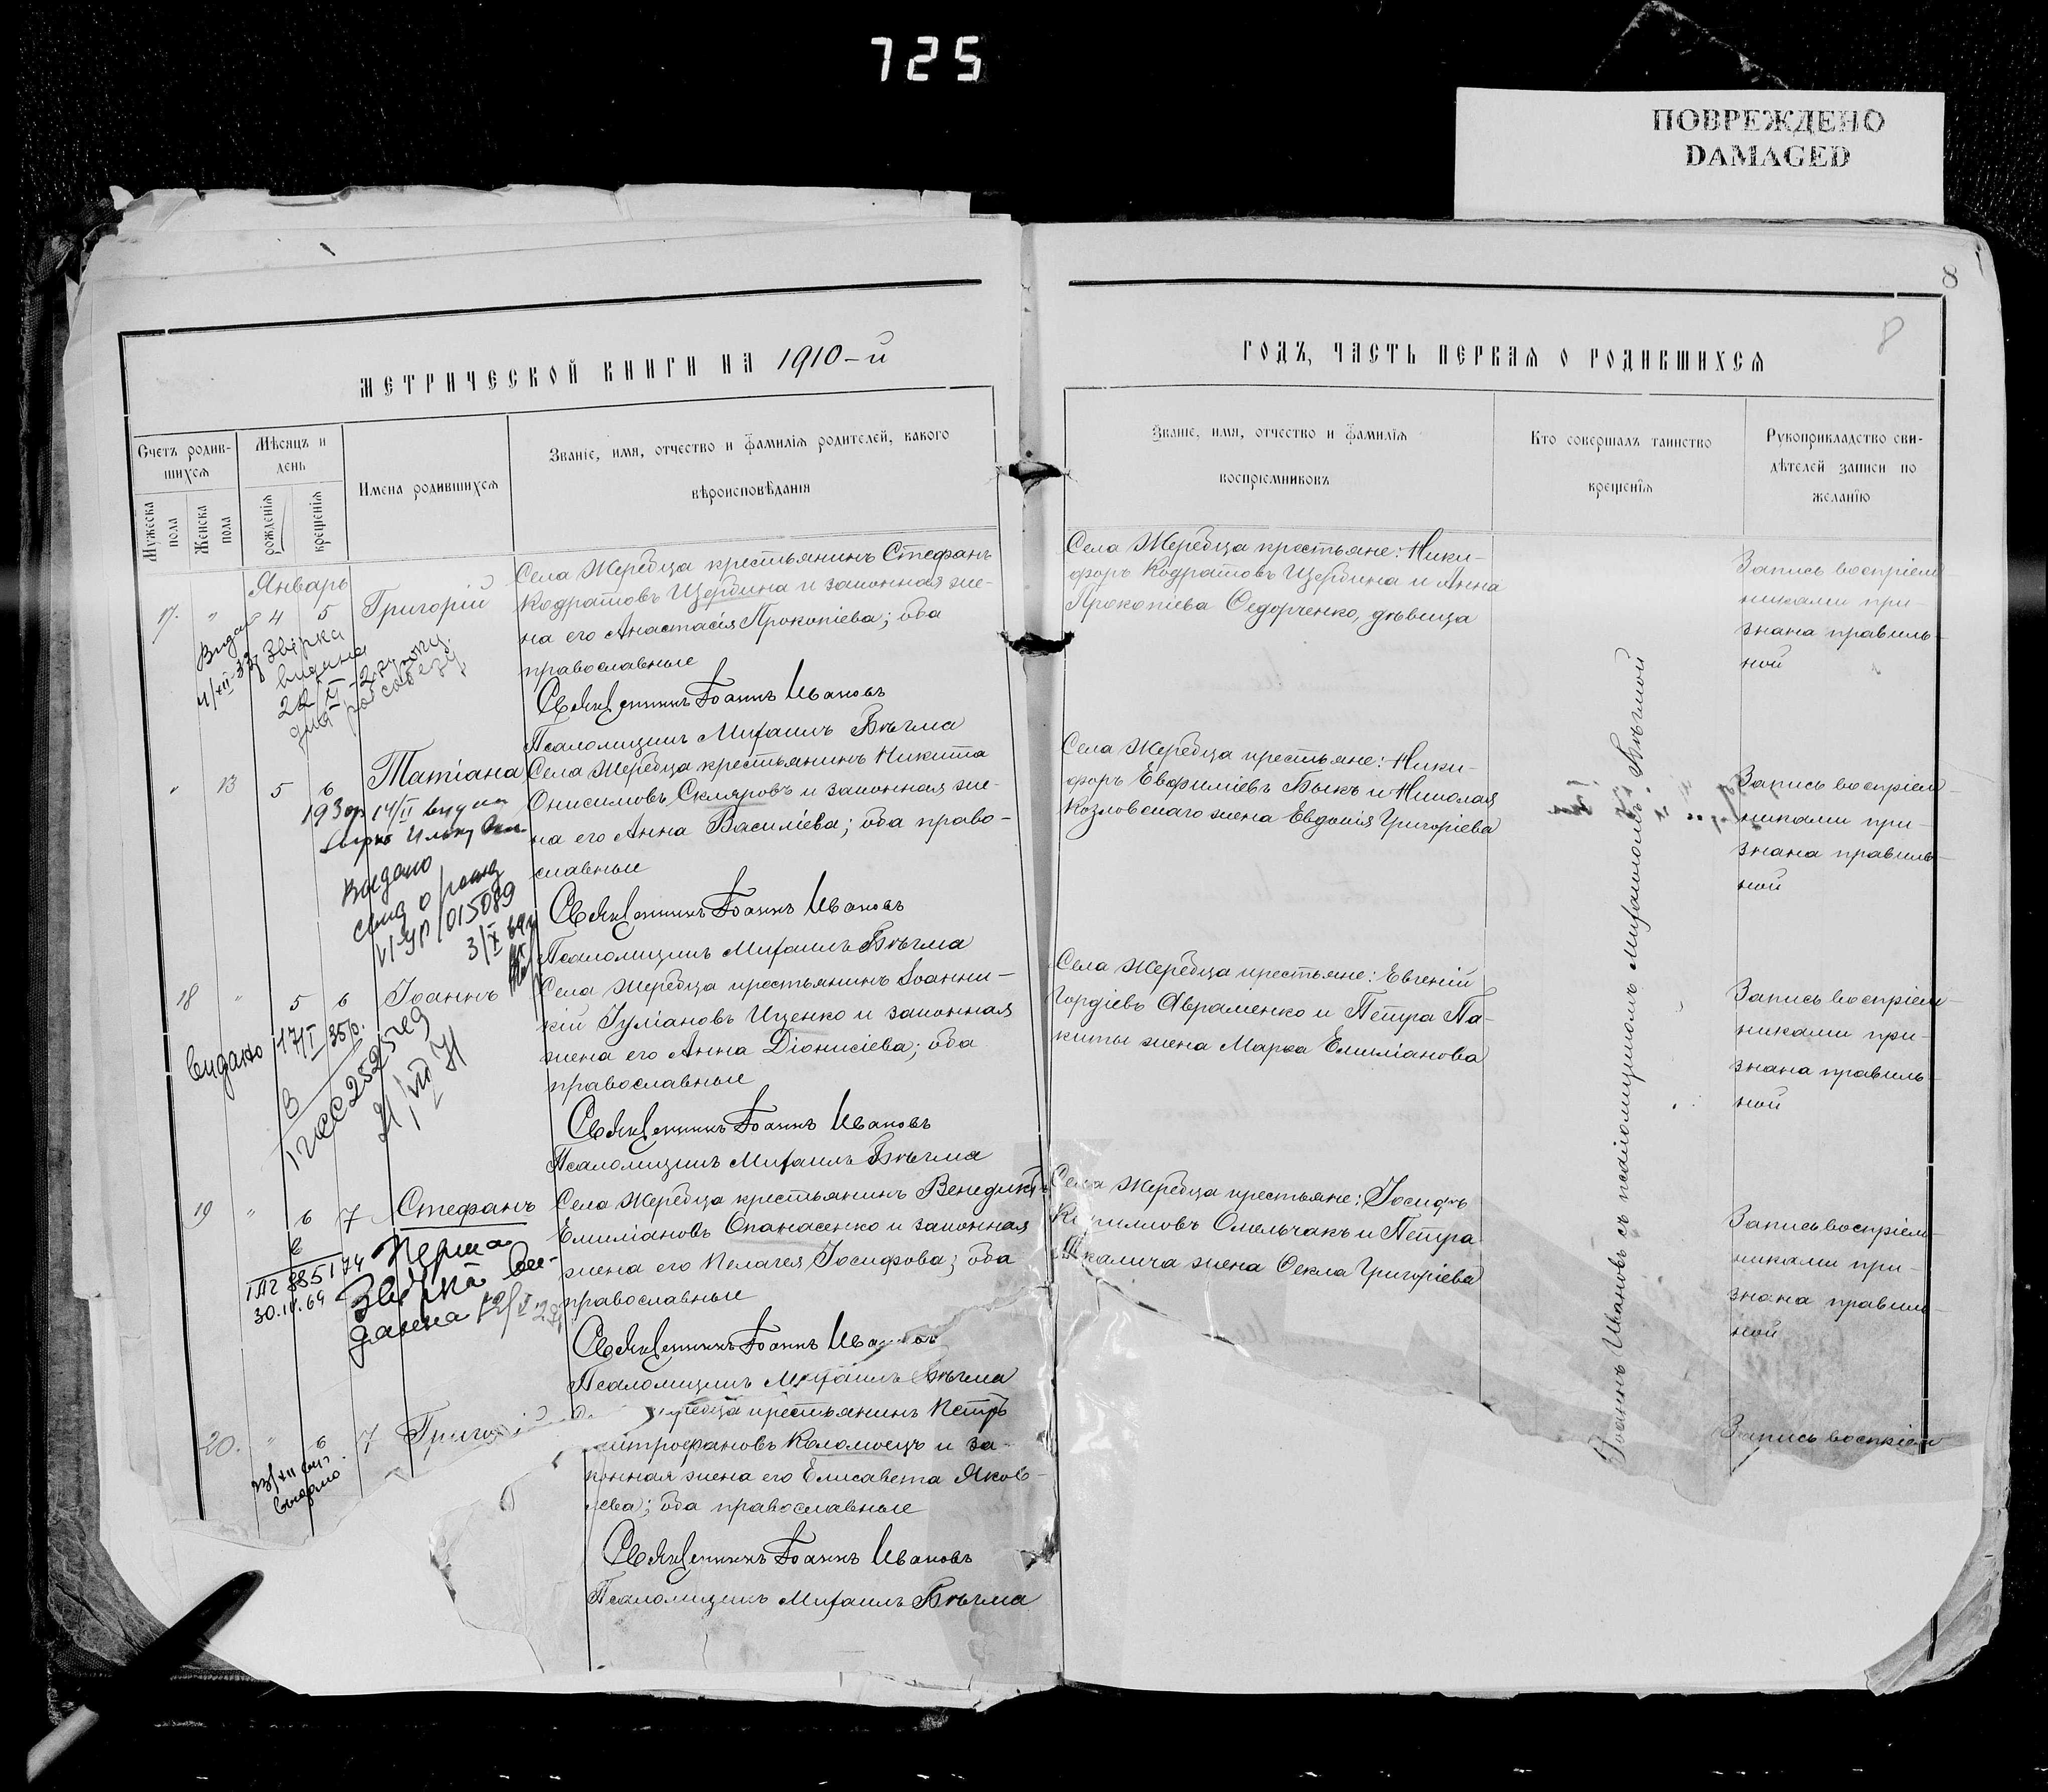 725
ПОВРЕЖДЕНО
DAMAGED
8
8
МЕТРИЧЕСКОЙ КНИГИ НА 1910-й
ГОДЪ, ЧАСТЬ ПЕРВАЯ О РОДИВШИХСЯ
Счетъ родив-
шихся
Мужеска пола
Женска пола
Мѣсяцъ и
день
рожденія
крещенія
Имена родившихся
Званіе, имя, отчество и фамилія родителей, какого
вѣроисповѣданія
Званіе, имя, отчество и фамилія
воспріемниковъ
Кто совершалъ таинство
крещенія
Рукоприкладство сви-
дѣтелей записи по
желанію
Январь
17. " 4 5 Григорій
Звірка
видана
22/VI-2 року
Села Жеребца крестьянинъ Стефанъ
Кодратовъ Щербина и законная же-
на его Анастасія Прокопіева; оба
православные
Священникъ Іоаннъ Ивановъ
Псаломщикъ Михаилъ Бѣгма
Села Жеребца крестьяне: Ники-
форъ Кодратовъ Щербина и Анна
Прокопіева Ѳедорченко, дѣвица
Запись воспріем-
никами при-
знана правиль-
ной
" 13 5 6 Татіана
Видано
свид о рожд
015089
3/X
Села Жеребца крестьянинъ Никита
Онисимовъ Скляровъ и законная же-
на его Анна Василіева; оба право-
славные
Священникъ Іоаннъ Ивановъ
Псаломщикъ Михаилъ Бѣгма
Села Жеребца крестьяне: Ники-
форъ Евфиміевъ Быкъ и Николая
Козловскаго жена Евдокія Григоріева
Запись воспріем-
никами при-
знана правиль-
ной
18 " 5 6 Іоаннъ
видано 17/I 35 р.
Села Жеребца крестьянинъ Іоанни-
кій Іуліановъ Ищенко и законная
жена его Анна Діонисіева; оба
православные
Священникъ Іоаннъ Ивановъ
Псаломщикъ Михаилъ Бѣгма
Села Жеребца крестьяне: Евгеній
Гордіевъ Авраменко и Петра Па-
киты жена Марѳа Емиліанова
Запись воспріем-
никами при-
знана правиль-
ной
19 " 6 7 Стефанъ
885174
30.IV.69
Перша
Звірка ви-
данна 12/I 28
Села Жеребца крестьянинъ Венедиктъ
Емиліановъ Опанасенко и законная
жена его Пелагея Іосифова; оба
православные
Священникъ Іоаннъ Ивановъ
Псаломщикъ Михаилъ Бѣгма
Села Жеребца крестьяне: Іосифъ
Кирилловъ Омельчакъ и Петра
жена Ѳекла Григоріева
Запись воспріем-
никами при-
знана правиль-
ной
20. " 6 7 Григорій
видано
крестьянинъ Петръ
Митрофановъ Коломоецъ и за-
конная жена его Елисавета Яков-
лева; оба православные
Священникъ Іоаннъ Ивановъ
Псаломщикъ Михаилъ Бѣгма
Запись воспріем
Іоаннъ Ивановъ съ псаломщикомъ Михаиломъ Бѣгмой